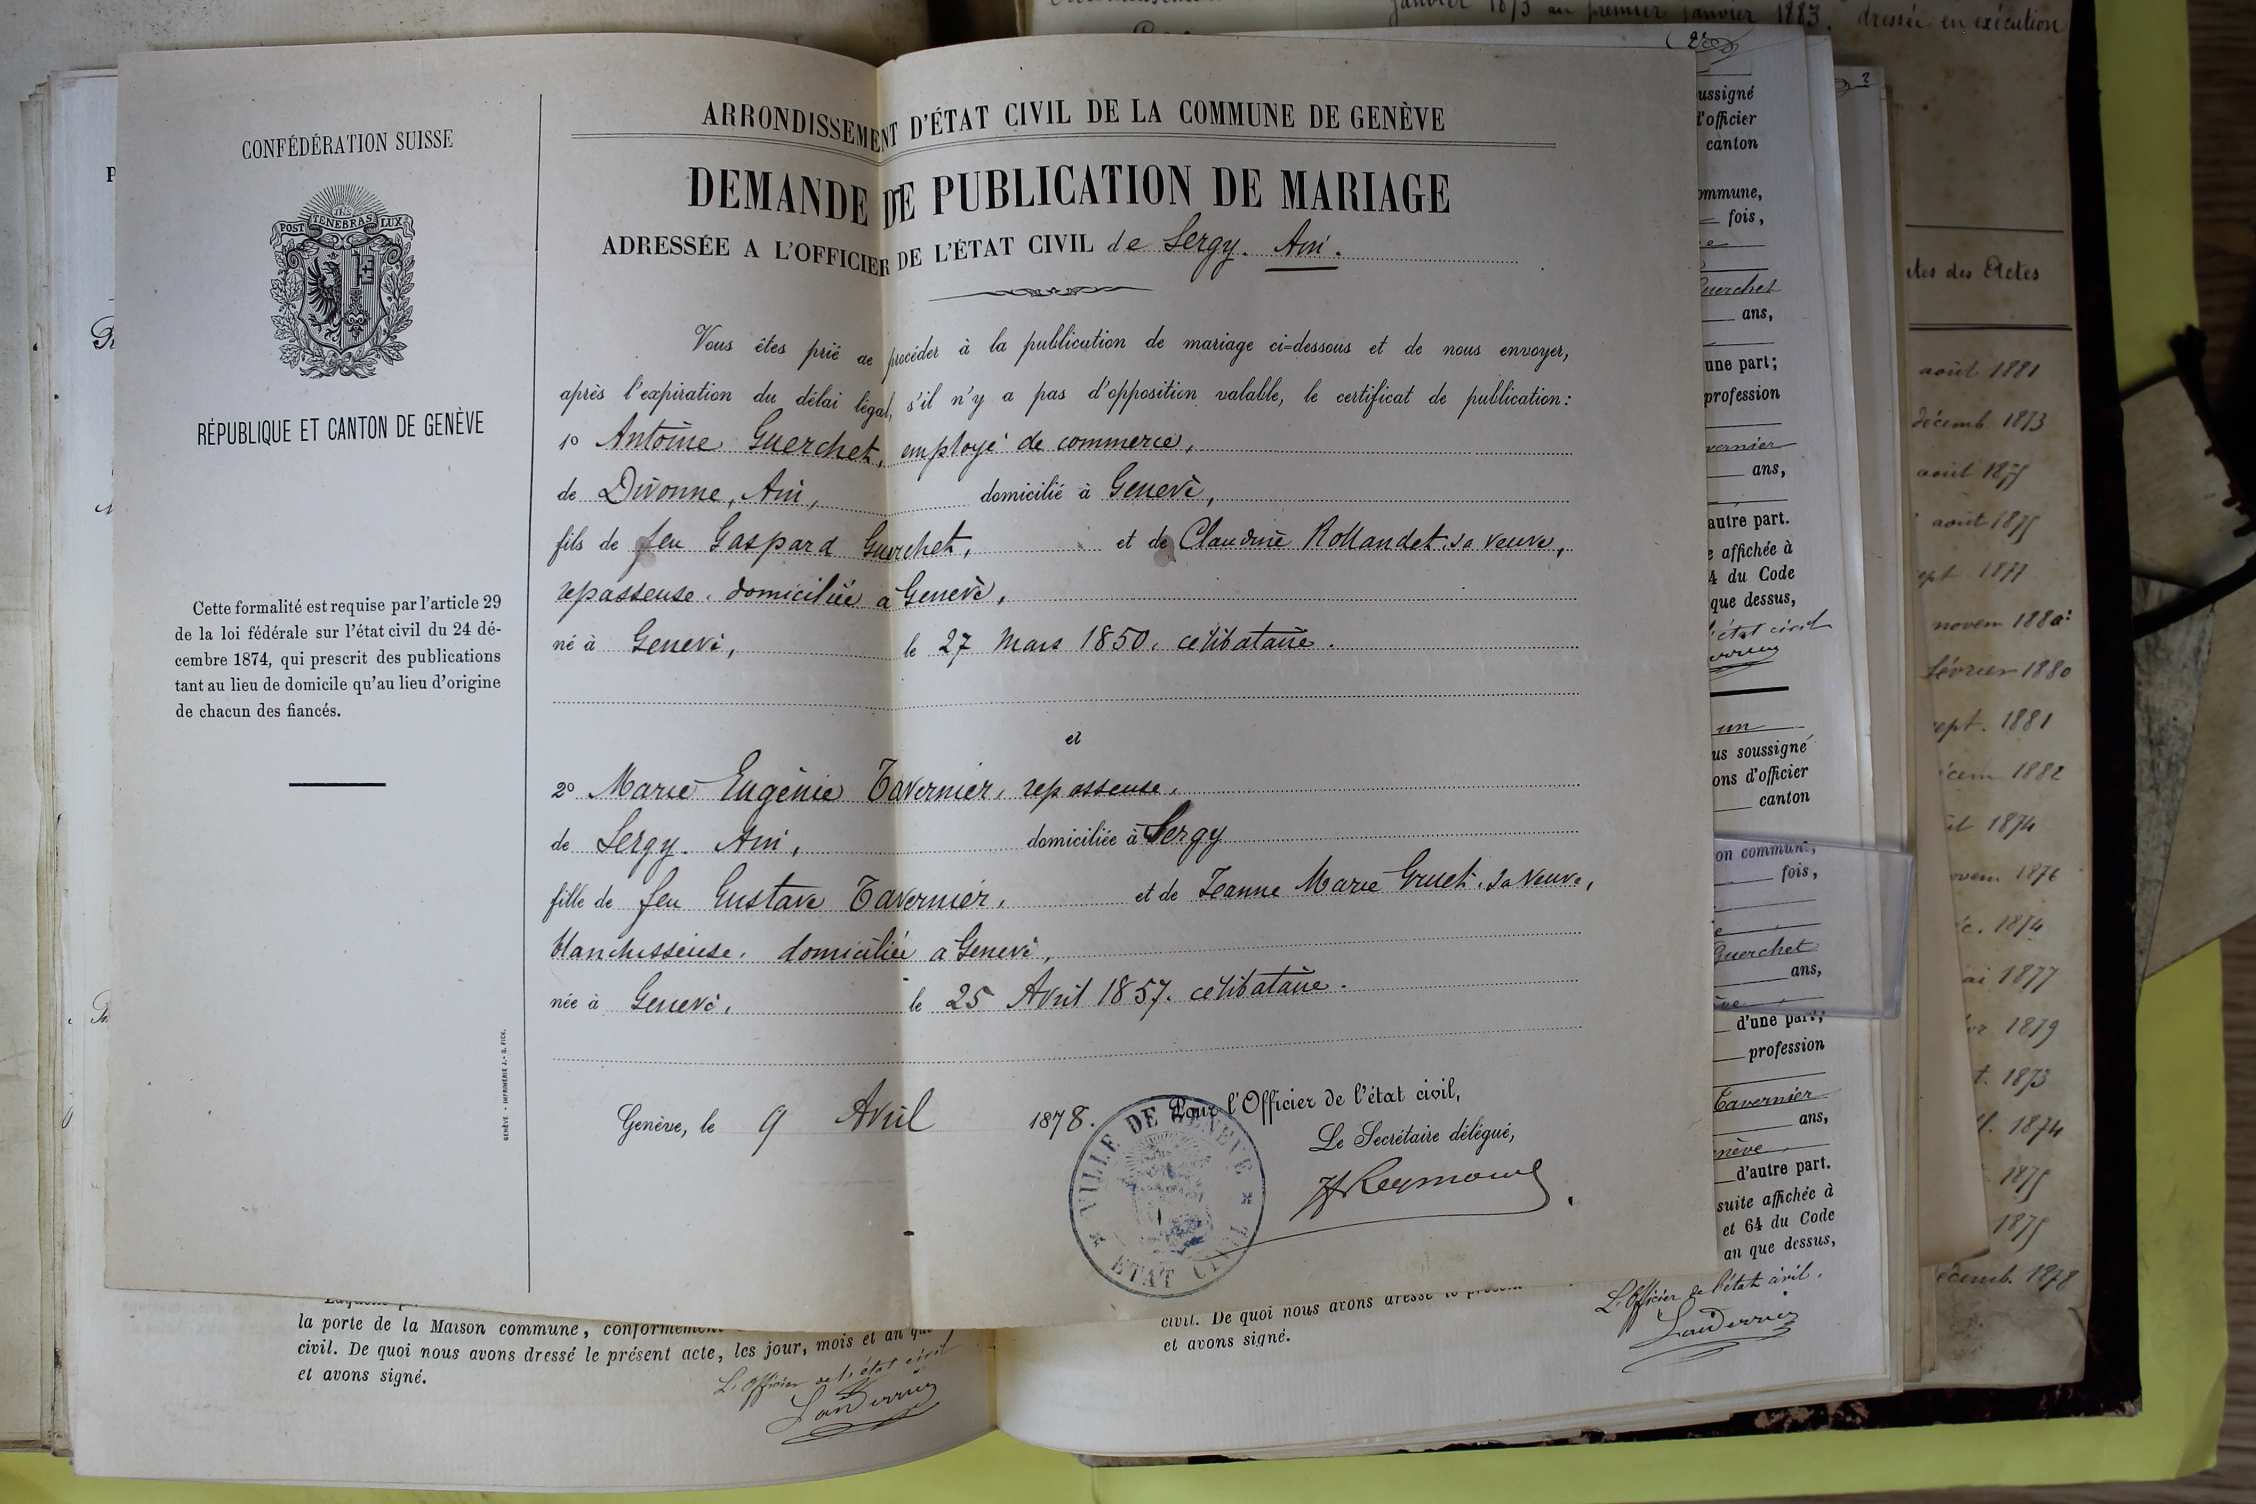 janvier 1873 au premier janvier 1883. dressée en exécution
CONFÉDÉRATION SUISSE
POST TENEBRAS LUX
RÉPUBLIQUE ET CANTON DE GENÈVE
Cette formalité est requise par l'article 29
de la loi fédérale sur l'état civil du 24 dé-
cembre 1874, qui prescrit des publications
tant au lieu de domicile qu'au lieu d'origine
de chacun des fiancés.
GENÈVE - IMPRIMERIE J.-G. FICK.
ARRONDISSEMENT D'ÉTAT CIVIL DE LA COMMUNE DE GENÈVE
DEMANDE DE PUBLICATION DE MARIAGE
ADRESSÉE A L'OFFICIER DE L'ÉTAT CIVIL de Sergy. Ain.
Vous êtes prié de procéder à la publication de mariage ci=dessous et de nous envoyer,
après l'expiration du délai légal, s'il n'y a pas d'opposition valable, le certificat de publication:
1º Antoine Guerchet, employé de commerce,
de Divonne, Ain, domicilié à Genève,
fils de feu Gaspard Guerchet, et de Claudine Rollandet, sa veuve,
repasseuse, domiciliée à Genève,
né à Genève, le 27 Mars 1850, célibataire.
et
2º Marie Eugénie Tavernier, repasseuse,
de Sergy. Ain, domiciliée à Sergy
fille de feu Gustave Tavernier, et de Jeanne Marie Gruet, sa veuve,
blanchisseuse, domiciliée à Genève,
née à Genève, le 25 Avril 1857. célibataire.
Genève, le 9 Avril 1878.
Pour l'Officier de l'état civil,
Le Secrétaire délégué,
VILLE DE GENÈVE
ETAT CIVIL
la porte de la Maison commune, conformément
civil. De quoi nous avons dressé le présent acte, les jour, mois et an que
et avons signé.
L'Officier de l'état civil
civil. De quoi nous avons dressé le présent
et avons signé.
L'Officier de l'état civil.
ussigné
l'officier
canton
ommune,
fois,
Guerchet
ans,
une part;
profession
vernier
ans,
autre part.
e affichée à
4 du Code
que dessus,
l'état civil
un
us soussigné
ons d'officier
canton
on commune,
fois,
Guerchet
ans,
d'une part;
profession
Tavernier
ans,
nève
d'autre part.
suite affichée à
et 64 du Code
an que dessus,
tes des Actes
août 1881
décemb. 1873
août 1875
août 1875
ept. 1877
novem 1880
février 1880
sept. 1881
cem 1882
1874
ovem. 1876
c. 1874
ai 1877
1879
t. 1873
1874
1875
1875
écemb. 1878